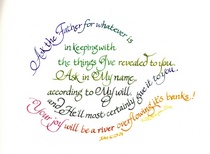 Ask the Father for whatever is
in keeping with
the things I've revealed to you.
Ask in My name,
according to My will,
and He'll most certainly give it to you.
Your joy will be a river overflowing its banks!